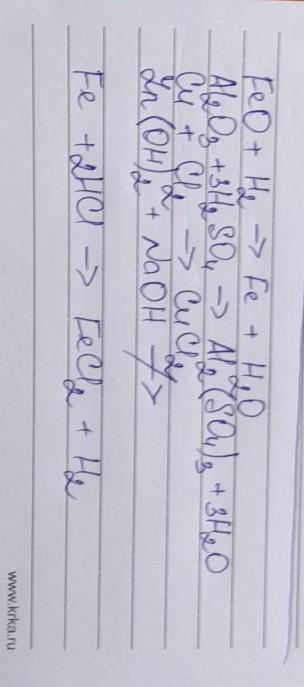 FeO + H₂ → Fe + H₂O
Al₂O₃ + 3H₂SO₄ → Al₂(SO₄)₃ + 3H₂O
Cu + Cl₂ → CuCl₂
Zn(OH)₂ + NaOH ↛
Fe + 2HCl → FeCl₂ + H₂
www.krka.ru